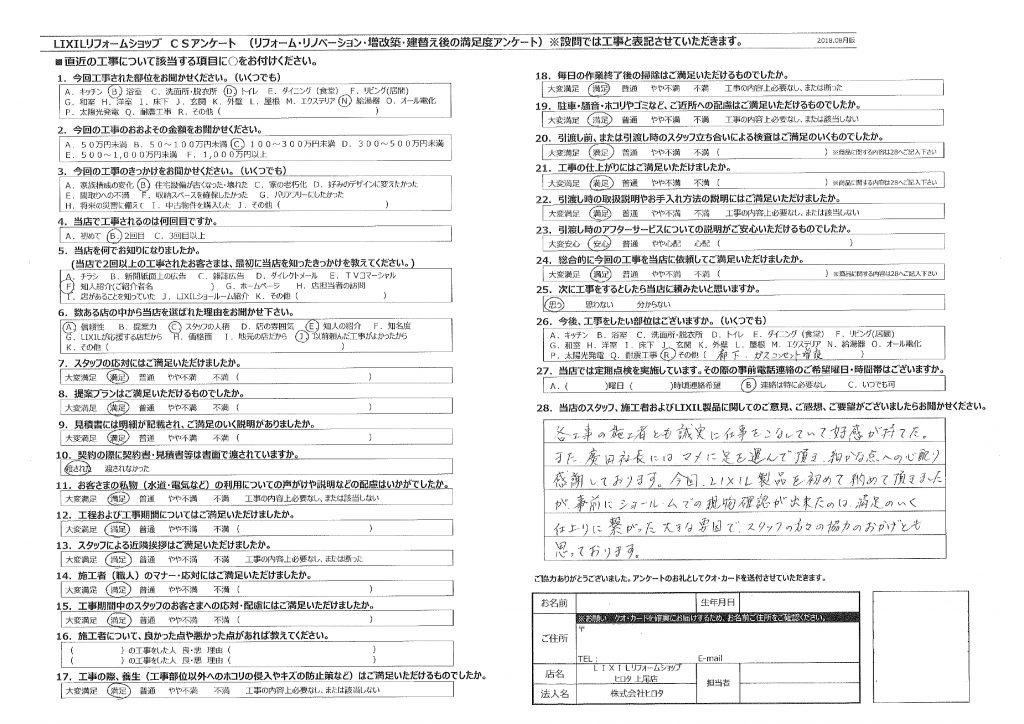 LIXILリフォームショップ ＣＳアンケート （リフォーム・リノベーション・増改築・建替え後の満足度アンケート）※設問では工事と表記させていただきます。
2018.08月版
■直近の工事について該当する項目に○をお付けください。
１．今回工事された部位をお聞かせください。（いくつでも）
Ａ．キッチン Ｂ．浴室 Ｃ．洗面所・脱衣所 Ｄ．トイレ Ｅ．ダイニング（食堂） Ｆ．リビング(居間)
Ｇ．和室 Ｈ．洋室 Ｉ．床下 Ｊ．玄関 Ｋ．外壁 Ｌ．屋根 Ｍ．エクステリア Ｎ．給湯器 Ｏ．オール電化
Ｐ．太陽光発電 Ｑ．耐震工事 Ｒ．その他（ ）
２．今回の工事のおおよその金額をお聞かせください。
Ａ．５０万円未満 Ｂ．５０～１００万円未満 Ｃ．１００～３００万円未満 Ｄ．３００～５００万円未満
Ｅ．５００～１,０００万円未満 Ｆ．１,０００万円以上
３．今回の工事のきっかけをお聞かせください。（いくつでも）
Ａ．家族構成の変化 Ｂ．住宅設備が古くなった・壊れた Ｃ．家の老朽化 Ｄ．好みのデザインに変えたかった
Ｅ．間取りへの不満 Ｆ．収納スペースを確保したかった Ｇ．バリアフリーにしたかった
Ｈ．将来の災害に備えて Ｉ．中古物件を購入した Ｊ．その他（ ）
４．当店で工事されるのは何回目ですか。
Ａ．初めて Ｂ．２回目 Ｃ．３回目以上
５．当店を何でお知りになりましたか。
（当店で２回以上の工事されたお客さまは、最初に当店を知ったきっかけを教えてください。）
Ａ．チラシ Ｂ．新聞紙面上の広告 Ｃ．雑誌広告 Ｄ．ダイレクトメール Ｅ．ＴＶコマーシャル
Ｆ．知人紹介(ご紹介者名 ) Ｇ．ホームページ Ｈ．店担当者の訪問
Ｉ．店があることを知っていた Ｊ．LIXILショールーム紹介 Ｋ．その他（ ）
６．数ある店の中から当店を選ばれた理由をお聞かせ下さい。
Ａ．信頼性 Ｂ．提案力 Ｃ．スタッフの人柄 Ｄ．店の雰囲気 Ｅ．知人の紹介 Ｆ．知名度
Ｇ．LIXILが応援する店だから Ｈ．価格面 Ｉ．地元の店だから Ｊ．以前頼んだ工事がよかったから
Ｋ．その他（ ）
７．スタッフの応対にはご満足いただけましたか。
大変満足 満足 普通 やや不満 不満（ ）
８．提案プランはご満足いただけるものでしたか。
大変満足 満足 普通 やや不満 不満（ ）
９．見積書には明細が記載され、ご満足のいく説明がありましたか。
大変満足 満足 普通 やや不満 不満（ ）
１０．契約の際に契約書・見積書等は書面で渡されていますか。
渡された 渡されなかった
１１．お客さまの私物（水道・電気など）の利用についての声がけや説明などの配慮はいかがでしたか。
大変満足 満足 普通 やや不満 不満 工事の内容上必要なし、または該当しない
１２．工程および工事期間についてはご満足いただけましたか。
大変満足 満足 普通 やや不満 不満（ ）
１３．スタッフによる近隣挨拶はご満足いただけましたか。
大変満足 満足 普通 やや不満 不満 工事の内容上必要なし、または断った
１４．施工者（職人）のマナー・応対にはご満足いただけましたか。
大変満足 満足 普通 やや不満 不満（ ）
１５．工事期間中のスタッフのお客さまへの応対・配慮にはご満足いただけましたか。
大変満足 満足 普通 やや不満 不満（ ）
１６．施工者について、良かった点や悪かった点があれば教えてください。
（ ）の工事をした人 良・悪 理由（ ）
（ ）の工事をした人 良・悪 理由（ ）
１７．工事の際、養生（工事部位以外へのホコリの侵入やキズの防止策など）はご満足いただけるものでしたか。
大変満足 満足 普通 やや不満 不満 工事の内容上必要なし、または該当しない
１８．毎日の作業終了後の掃除はご満足いただけるものでしたか。
大変満足 満足 普通 やや不満 不満 工事の内容上必要なし、または断った
１９．駐車・騒音・ホコリやゴミなど、ご近所への配慮はご満足いただけるものでしたか。
大変満足 満足 普通 やや不満 不満 工事の内容上必要なし、または該当しない
２０．引渡し前、または引渡し時のスタッフ立ち合いによる検査はご満足のいくものでしたか。
大変満足 満足 普通 やや不満 不満（ ）※商品に関する内容は28へご記入下さい
２１．工事の仕上がりにはご満足いただけましたか。
大変満足 満足 普通 やや不満 不満（ ）※商品に関する内容は28へご記入下さい
２２．引渡し時の取扱説明やお手入れ方法の説明にはご満足いただけましたか。
大変満足 満足 普通 やや不満 不満 工事の内容上必要なし、または該当しない
２３．引渡し時のアフターサービスについての説明がご安心いただけるものでしたか。
大変安心 安心 普通 やや心配 心配（ ）
２４．総合的に今回の工事を当店に依頼してご満足いただけましたか。
大変満足 満足 普通 やや不満 不満（ ）※商品に関する内容は28へご記入下さい
２５．次に工事をするとしたら当店に頼みたいと思いますか。
思う 思わない 分からない
２６．今後、工事をしたい部位はございますか。（いくつでも）
Ａ．キッチン Ｂ．浴室 Ｃ．洗面所・脱衣所 Ｄ．トイレ Ｅ．ダイニング（食堂） Ｆ．リビング(居間)
Ｇ．和室 Ｈ．洋室 Ｉ．床下 Ｊ．玄関 Ｋ．外壁 Ｌ．屋根 Ｍ．エクステリア Ｎ．給湯器 Ｏ．オール電化
Ｐ．太陽光発電 Ｑ．耐震工事 Ｒ．その他（ 廊下、ガスコンセント増設 ）
２７．当店では定期点検を実施しています。その際の事前電話連絡のご希望曜日・時間帯はございますか。
Ａ．（ ）曜日（ ）時頃連絡希望 Ｂ．連絡は特に必要なし Ｃ．いつでも可
２８．当店のスタッフ、施工者およびLIXIL製品に関してのご意見、ご感想、ご要望がございましたらお聞かせください。
各工事の施工者とも誠実に仕事をこなしていて好感が持てた。
また廣田社長にはマメに足を運んで頂き、細かな点への心配り
感謝しております。今回、LIXIL製品を初めて納めて頂きました
が、事前にショールームでの現物確認が出来たのは、満足のいく
仕上りに繋がった大きな要因で、スタッフの方々の協力のおかげとも
思っております。
ご協力ありがとうございました。アンケートのお礼としてクオ・カードを送付させていただきます。
お名前 生年月日
※お願い クオ・カードを確実にお届けするため、お名前ご住所をご確認ください。
ご住所 〒
TEL： E-mail
店名 ＬＩＸＩＬリフォームショップ ヒロタ 上尾店 担当者
法人名 株式会社ヒロタ